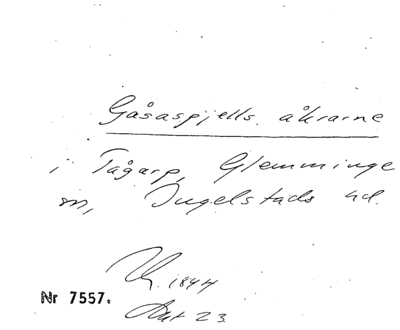 Gåsaspjells åkrarne
i Tågarp, Glemminge
sn, Ingelstads hd.
1844
Nr 7557.
Akt 23